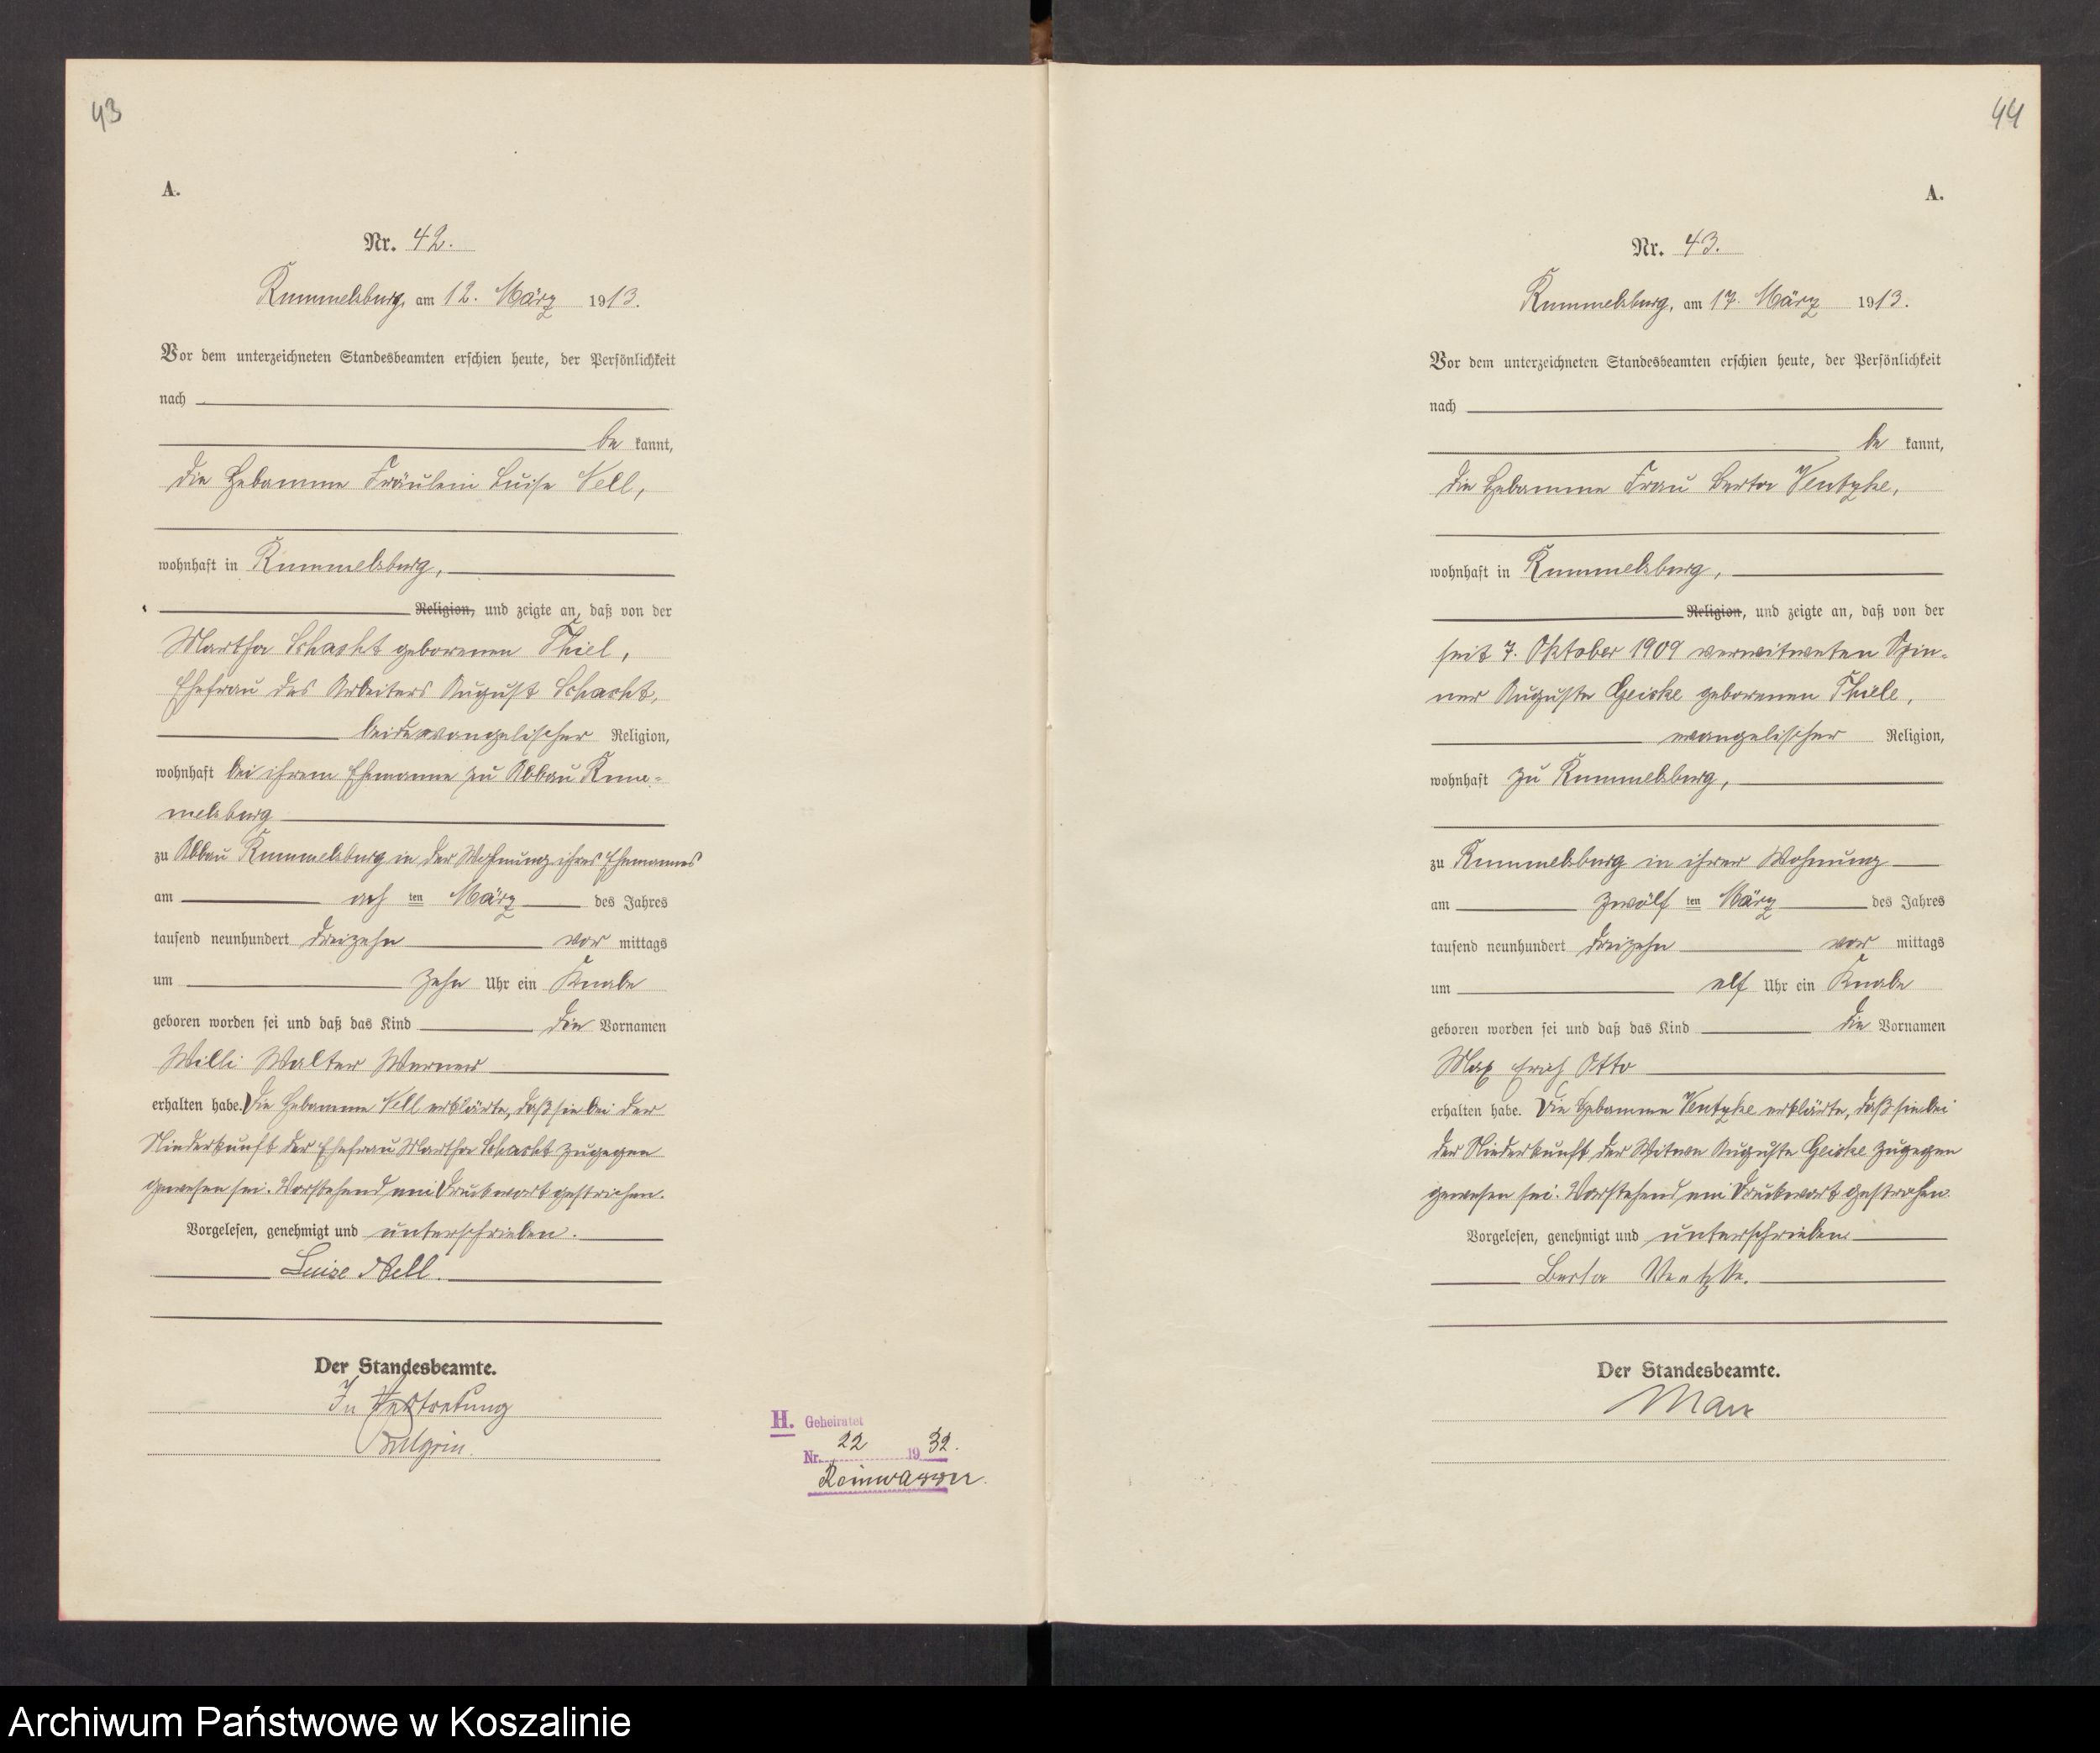 43
A.
Nr. 42.
Rummelsburg, am 12. März 1913.
Vor dem unterzeichneten Standesbeamten erschien heute, der Persönlichkeit
nach
be kannt,
die Hebamme Fräulein Luise Nell,
wohnhaft in Rummelsburg,
Religion, und zeigte an, daß von der
Martha Schacht geborenen Thiel,
Ehefrau des Arbeiters August Schacht,
beide evangelischer Religion,
wohnhaft bei ihrem Ehemanne zu Abbau Rum-
melsburg
zu Abbau Rummelsburg in der Wohnung ihres Ehemannes
am ach ten März des Jahres
tausend neunhundert dreizehn vor mittags
um zehn Uhr ein Knabe
geboren worden sei und daß das Kind die Vornamen
Willi Walter Werner
erhalten habe. Die Hebamme Nell erklärte, daß sie bei der
Niederkunft der Ehefrau Martha Schacht zugegen
gewesen sei. Vorstehend ein Druckwort gestrichen.
Vorgelesen, genehmigt und unterschrieben.
Luise Nell.
Der Standesbeamte.
In Vertretung
H. Geheiratet
Nr. 22 1932.
Reinwasser.
44
A.
Nr. 43.
Rummelsburg, am 17. März 1913.
Vor dem unterzeichneten Standesbeamten erschien heute, der Persönlichkeit
nach
be kannt,
die Hebamme Frau Berta Ventzke,
wohnhaft in Rummelsburg,
Religion, und zeigte an, daß von der
seit 7. Oktober 1909 verwitweten Spin-
ner Auguste Geiske geborenen Thiele,
evangelischer Religion,
wohnhaft zu Rummelsburg,
zu Rummelsburg in ihrer Wohnung
am zwölf ten März des Jahres
tausend neunhundert dreizehn vor mittags
um elf Uhr ein Knabe
geboren worden sei und daß das Kind die Vornamen
Max Erich Otto
erhalten habe. Die Hebamme Ventzke erklärte, daß sie bei
der Niederkunft der Witwe Auguste Geiske zugegen
gewesen sei. Vorstehend ein Druckwort gestrichen.
Vorgelesen, genehmigt und unterschrieben.
Berta Ventzke.
Der Standesbeamte.
Archiwum Państwowe w Koszalinie